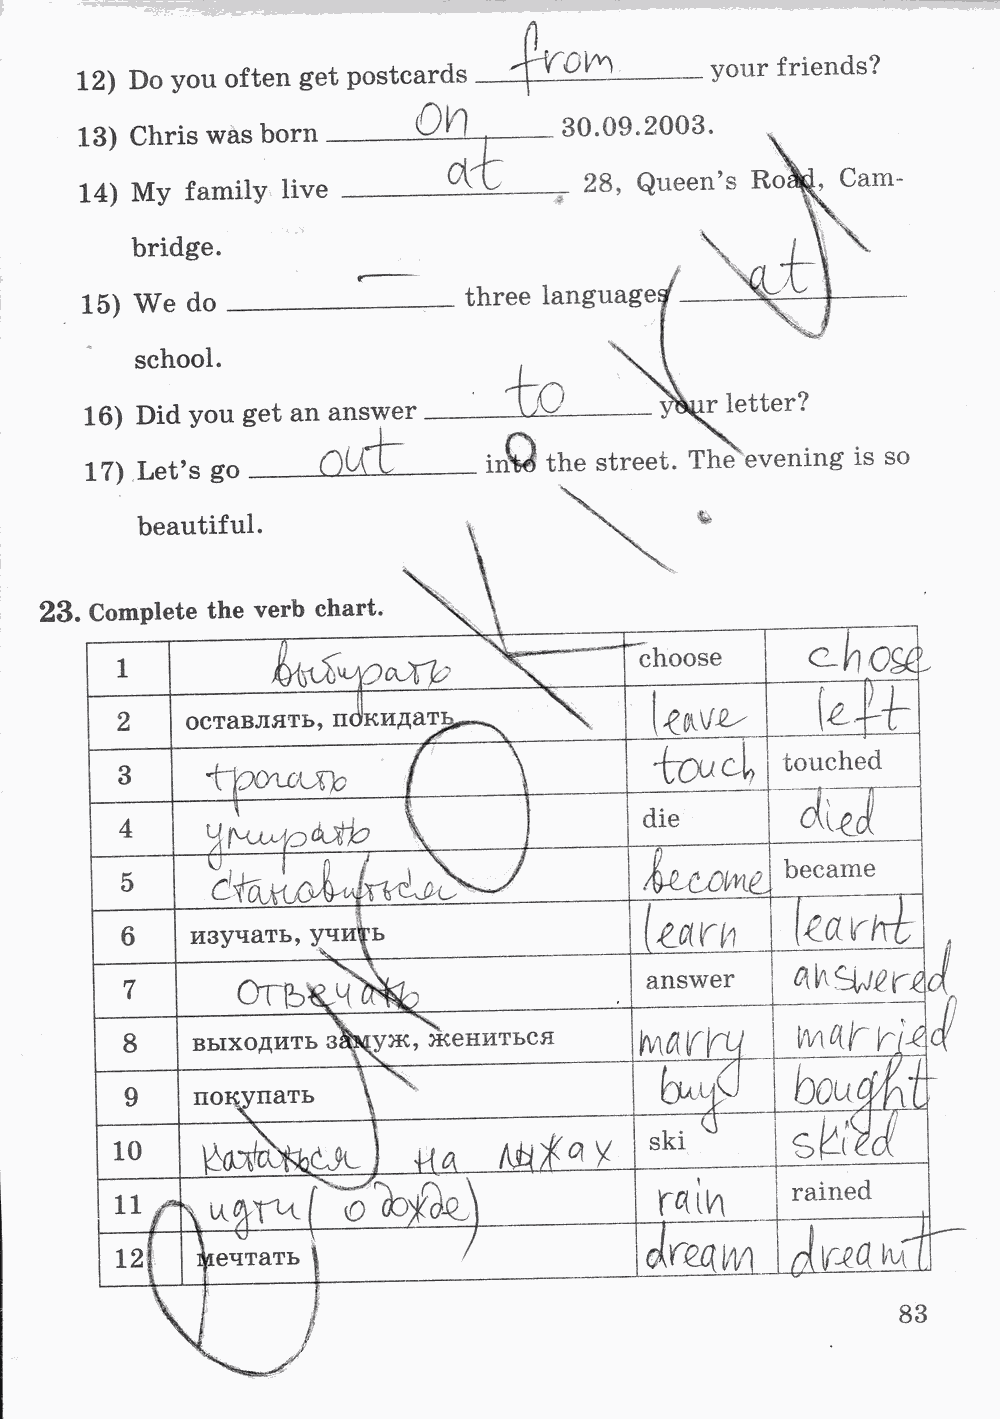 12) Do you often get postcards from your friends?
13) Chris was born on 30.09.2003.
14) My family live at 28, Queen's Road, Cam-
bridge.
15) We do — three languages at
school.
16) Did you get an answer to your letter?
17) Let's go out into the street. The evening is so
beautiful.
23. Complete the verb chart.
1 выбирать choose chose
2 оставлять, покидать leave left
3 трогать touch touched
4 умирать die died
5 становиться become became
6 изучать, учить learn learnt
7 отвечать answer answered
8 выходить замуж, жениться marry married
9 покупать buy bought
10 кататься на лыжах ski skied
11 идти (о дожде) rain rained
12 мечтать dream dreamt
83